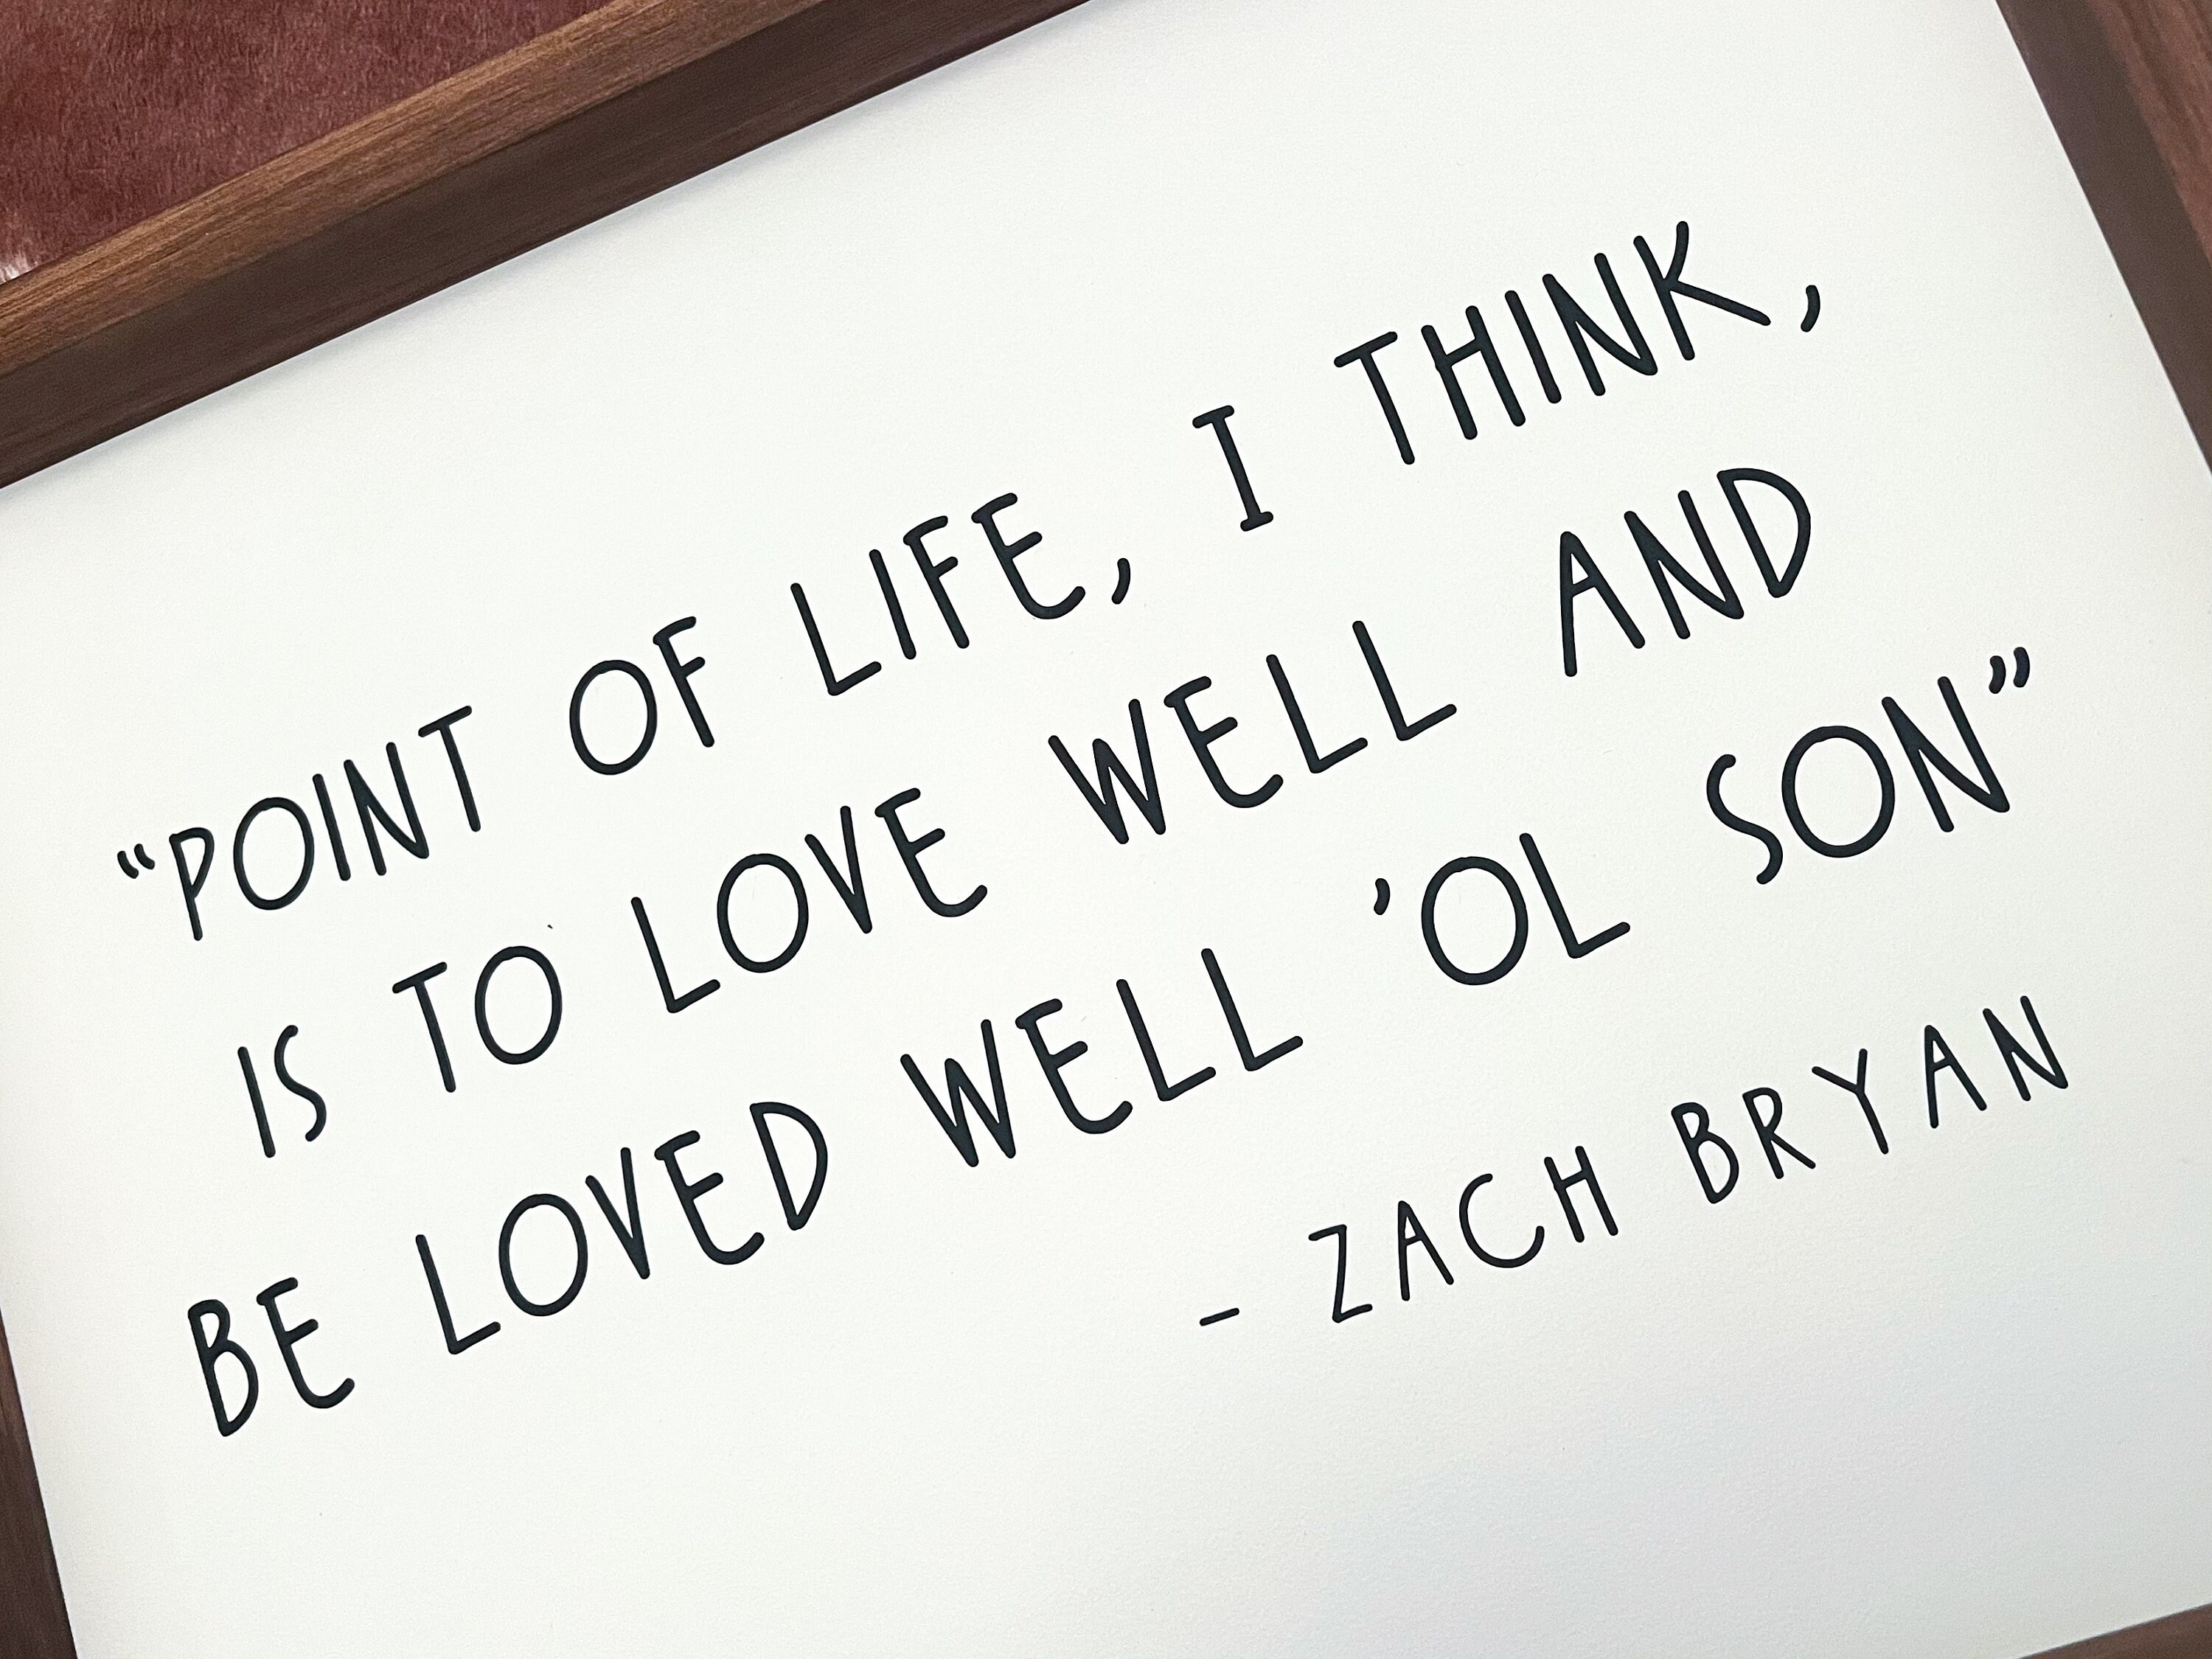 “POINT OF LIFE, I THINK,
IS TO LOVE WELL AND
BE LOVED WELL ’OL SON”
- ZACH BRYAN